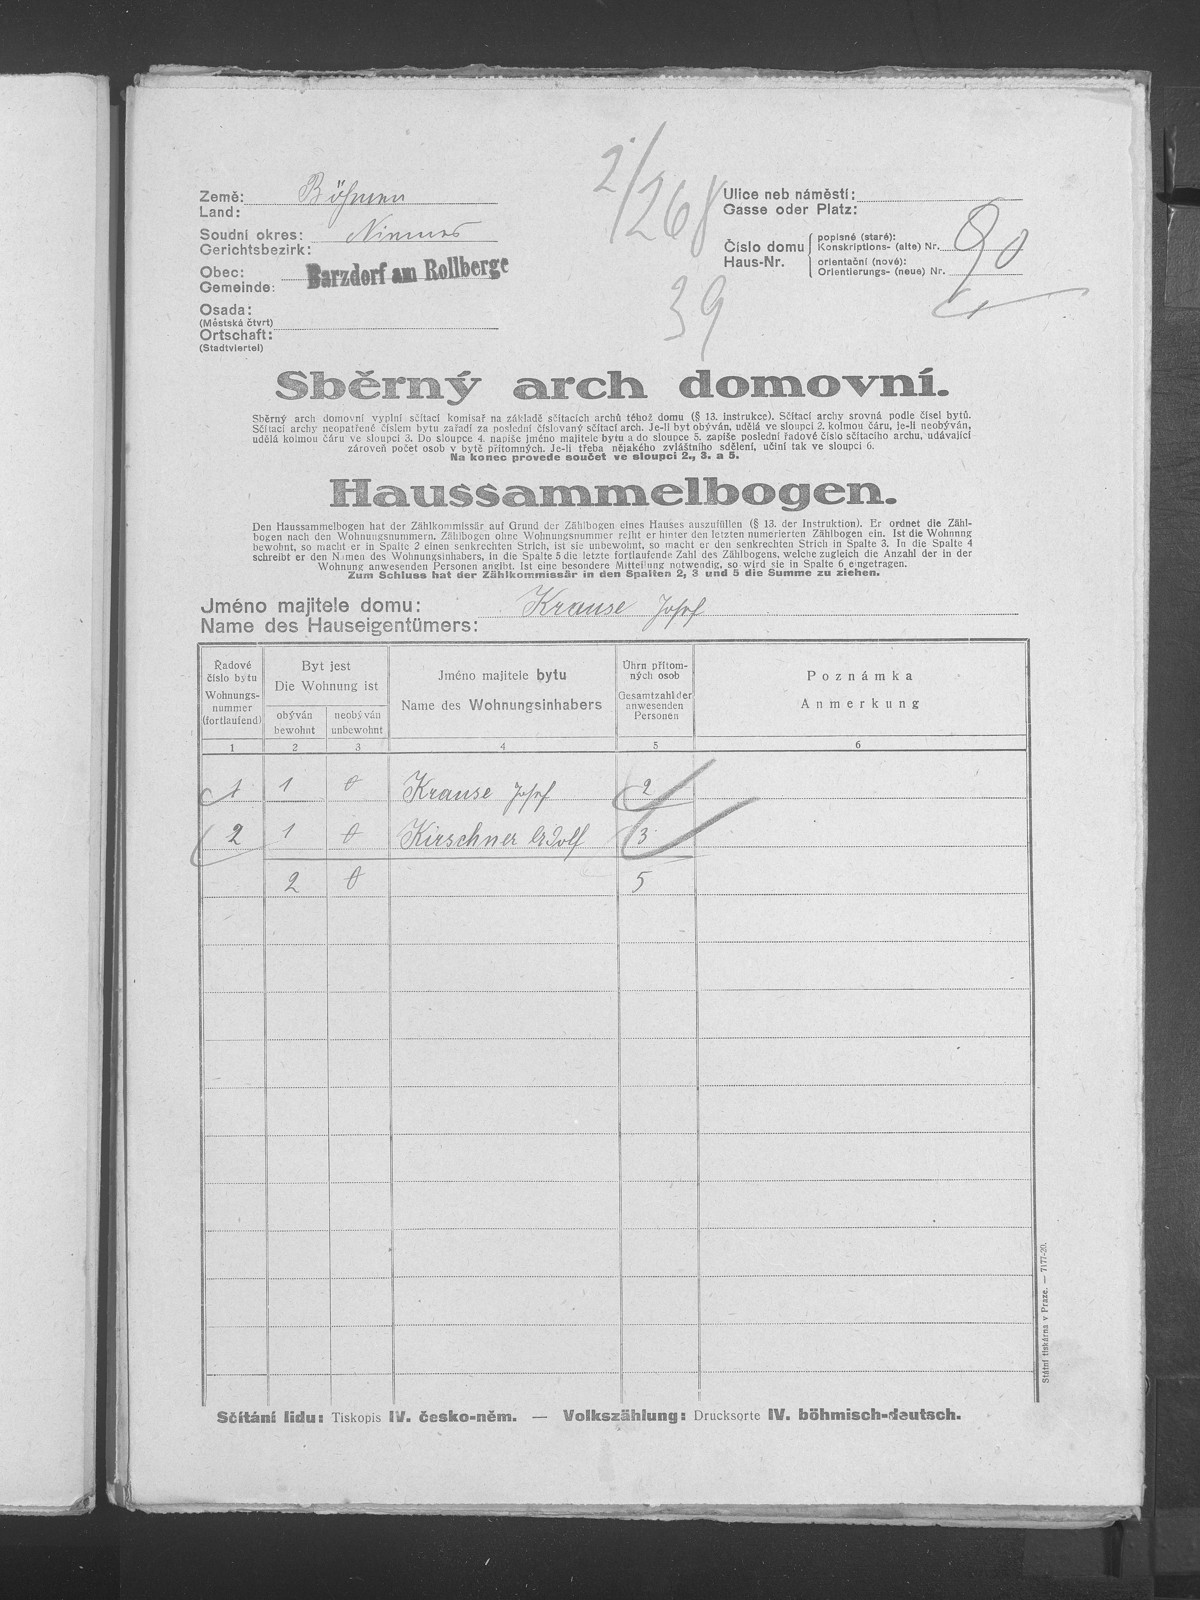 2/268
39
Země: Böhmen
Land:
Soudní okres: Niemes
Gerichtsbezirk:
Obec: Barzdorf am Rollberge
Gemeinde:
Osada:
(Městská čtvrt)
Ortschaft:
(Stadtviertel)
Ulice neb náměstí:
Gasse oder Platz:
Číslo domu
Haus-Nr.
popisné (staré):
Konskriptions- (alte) Nr. 90
orientační (nové):
Orientierungs- (neue) Nr.
Sběrný arch domovní.
Sběrný arch domovní vyplní sčítací komisař na základě sčítacích archů téhož domu (§ 13. instrukce). Sčítací archy srovná podle čísel bytů.
Sčítací archy neopatřené číslem bytu zařadí za poslední číslovaný sčítací arch. Je-li byt obýván, udělá ve sloupci 2. kolmou čáru, je-li neobýván,
udělá kolmou čáru ve sloupci 3. Do sloupce 4. napíše jméno majitele bytu a do sloupce 5. zapíše poslední řadové číslo sčítacího archu, udávající
zároveň počet osob v bytě přítomných. Je-li třeba nějakého zvláštního sdělení, učiní tak ve sloupci 6.
Na konec provede součet ve sloupci 2., 3. a 5.
Haussammelbogen.
Den Haussammelbogen hat der Zählkommissär auf Grund der Zählbogen eines Hauses auszufüllen (§ 13. der Instruktion). Er ordnet die Zähl-
bogen nach den Wohnungsnummern. Zählbogen ohne Wohnungsnummer reiht er hinter den letzten numerierten Zählbogen ein. Ist die Wohnung
bewohnt, so macht er in Spalte 2 einen senkrechten Strich, ist sie unbewohnt, so macht er den senkrechten Strich in Spalte 3. In die Spalte 4
schreibt er den Namen des Wohnungsinhabers, in die Spalte 5 die letzte fortlaufende Zahl des Zählbogens, welche zugleich die Anzahl der in der
Wohnung anwesenden Personen angibt. Ist eine besondere Mitteilung notwendig, so wird sie in Spalte 6 eingetragen.
Zum Schluss hat der Zählkommissär in den Spalten 2, 3 und 5 die Summe zu ziehen.
Jméno majitele domu: Krause Josef
Name des Hauseigentümers:
Řadové číslo bytu
Wohnungs-nummer (fortlaufend)
Byt jest
Die Wohnung ist
obýván
bewohnt
neobýván
unbewohnt
Jméno majitele bytu
Name des Wohnungsinhabers
Úhrn přítom-ných osob
Gesamtzahl der anwesenden Personen
Poznámka
Anmerkung
1 2 3 4 5 6
1 1 0 Krause Josef 2
2 1 0 Kirschner Adolf 3
2 0 5
Státní tiskárna v Praze. — 7177-20.
Sčítání lidu: Tiskopis IV. česko-něm. — Volkszählung: Drucksorte IV. böhmisch-deutsch.